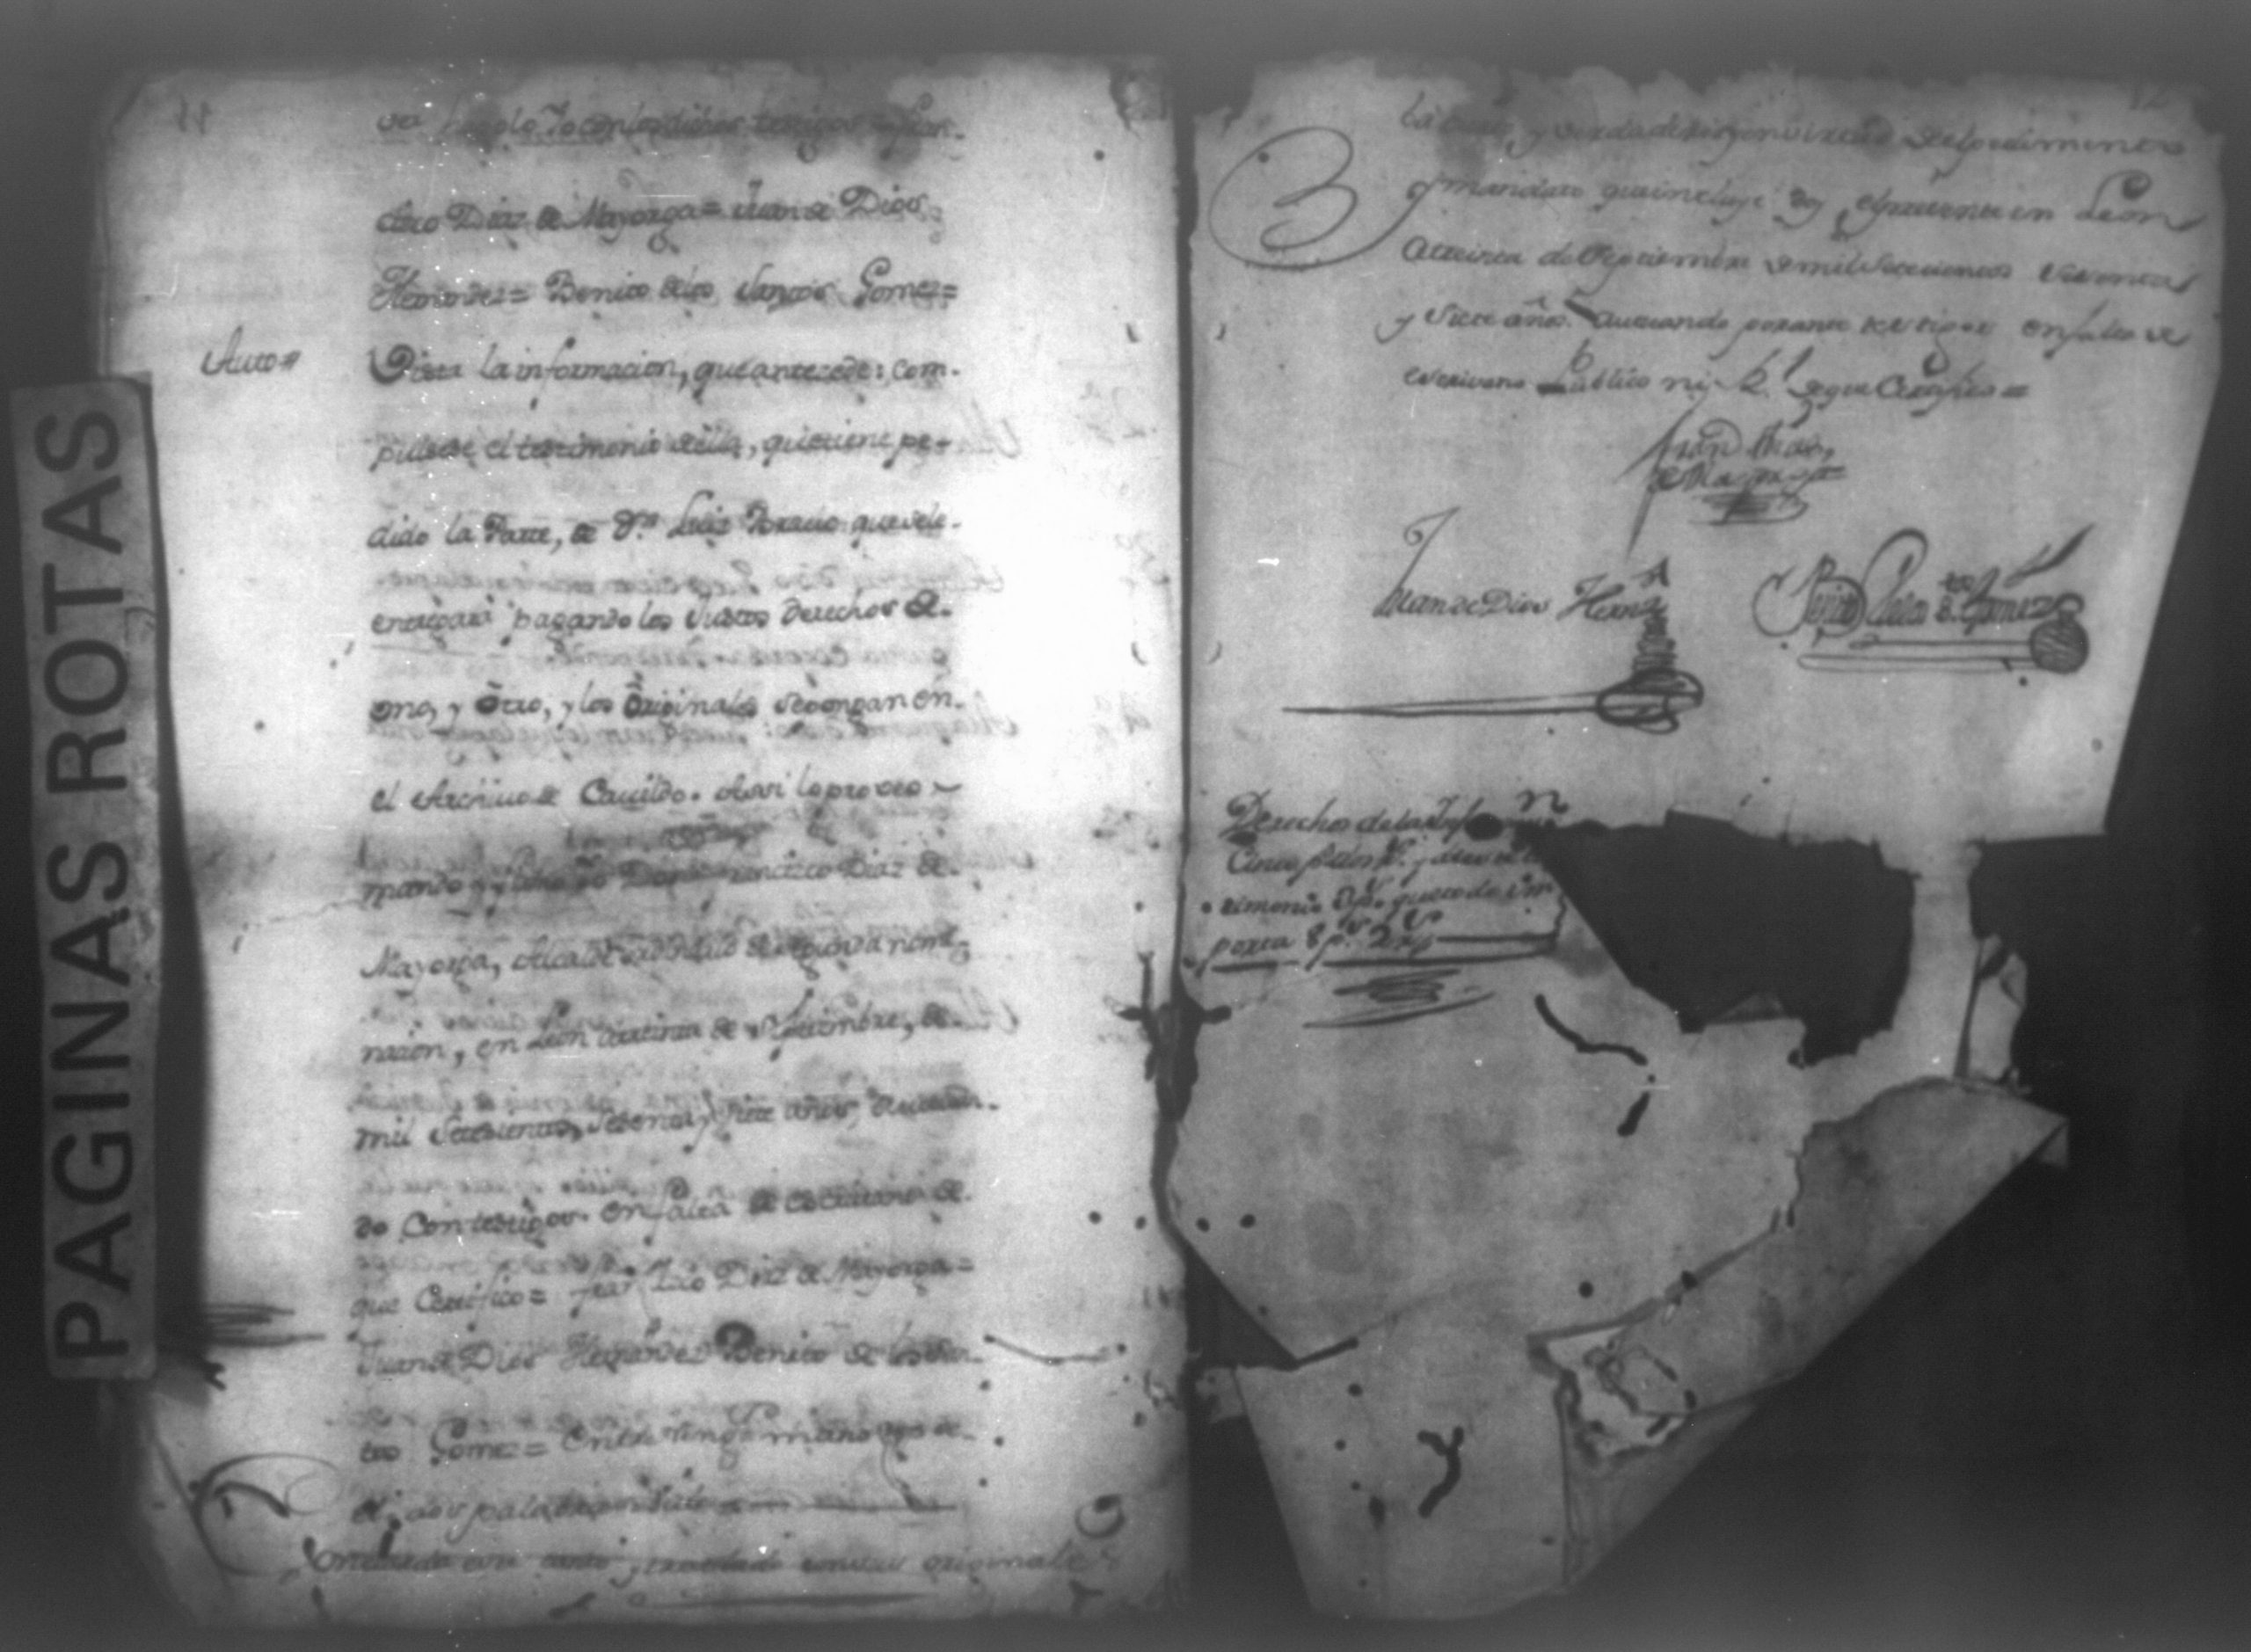 PAGINAS ROTAS
11
ver hazelo Yo con los dichos testigos = Fran-
cisco Diaz de Mayorga = Juan de Dios
Hernandez = Benito delos Santos Gomez =
Auto =
Vista la informacion, que antecede: com-
pulsese el testimonio della, que tiene pe-
dido la Parte, de Dn. Luis que sele-
entregará pagando los Justos Derechos de-
uno, y Otro, y los Originales se pongan en-
el Archiuo de Cauildo. Assi lo proveo
mando y firmo Yo Don Francisco Diaz de-
Mayorga, Alcalde Ordinario de segunda nomi-
nacion, en Leon atreinta de Septiembre, de-
mil Setesientos, Sesenta y siete años, Actuan-
do Con testigos. en falta de escriuano de-
que Certifico = Franco Diaz de Mayorga =
Juan de Dios Hernandez Benito de los San-
tos Gomez =
palabra
Concuerda con originales
12
y mandato que incluye doy el presente en Leon
a treinta de Septiembre de mil Setecientos Sesenta
y Siete años. Autuando por ante testigos en falta de
escrivano Publico ni Rl. de que Certifico =
Fran Dias,
de Mayorga
Juan de Dios Hernz
Benito delos Stos Gomez
Derechos de la Infon
Cinco y dies
timonio que todo im
porta 8 ps. 2 rs